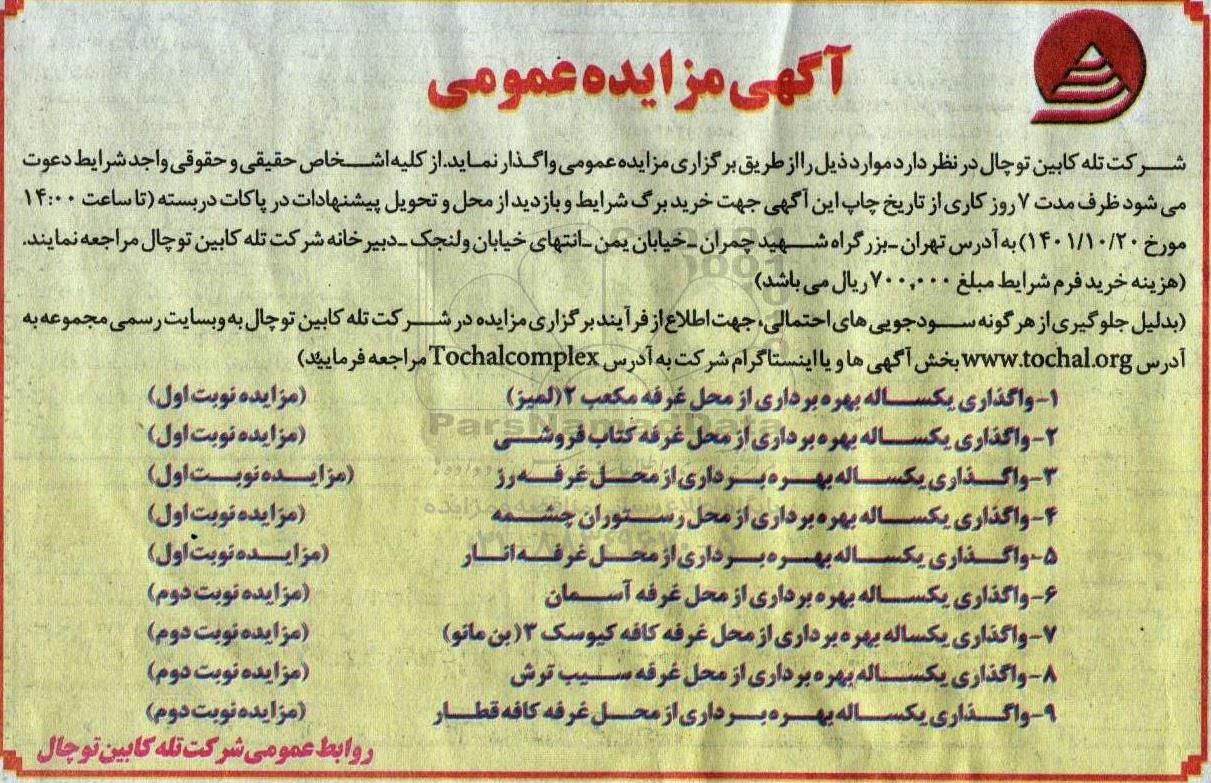 آگهی مزایده عمومی
شرکت تله کابین توچال در نظر دارد موارد ذیل را از طریق برگزاری مزایده عمومی واگذار نماید. از کلیه اشخاص حقیقی و حقوقی واجد شرایط دعوت
می شود ظرف مدت ۷ روز کاری از تاریخ چاپ این آگهی جهت خرید برگ شرایط و بازدید از محل و تحویل پیشنهادات در پاکات دربسته (تا ساعت ۱۴:۰۰
مورخ ۱۴۰۱/۱۰/۲۰) به آدرس تهران - بزرگراه شهید چمران - خیابان یمن - انتهای خیابان ولنجک - دبیرخانه شرکت تله کابین توچال مراجعه نمایند.
(هزینه خرید فرم شرایط مبلغ ۷۰۰,۰۰۰ ریال می باشد)
(بدلیل جلوگیری از هر گونه سودجویی های احتمالی، جهت اطلاع از فرآیند برگزاری مزایده در شرکت تله کابین توچال به وبسایت رسمی مجموعه به
آدرس www.tochal.org بخش آگهی ها و یا اینستاگرام شرکت به آدرس Tochalcomplex مراجعه فرمایید)
۱- واگذاری یکساله بهره برداری از محل غرفه مکعب ۲ (لمیز) (مزایده نوبت اول)
۲- واگذاری یکساله بهره برداری از محل غرفه کتاب فروشی (مزایده نوبت اول)
۳- واگذاری یکساله بهره برداری از محل غرفه رز (مزایده نوبت اول)
۴- واگذاری یکساله بهره برداری از محل رستوران چشمه (مزایده نوبت اول)
۵- واگذاری یکساله بهره برداری از محل غرفه انار (مزایده نوبت اول)
۶- واگذاری یکساله بهره برداری از محل غرفه آسمان (مزایده نوبت دوم)
۷- واگذاری یکساله بهره برداری از محل غرفه کافه کیوسک ۳ (بن مانو) (مزایده نوبت دوم)
۸- واگذاری یکساله بهره برداری از محل غرفه سیب ترش (مزایده نوبت دوم)
۹- واگذاری یکساله بهره برداری از محل غرفه کافه قطار (مزایده نوبت دوم)
روابط عمومی شرکت تله کابین توچال
ParsNamadData